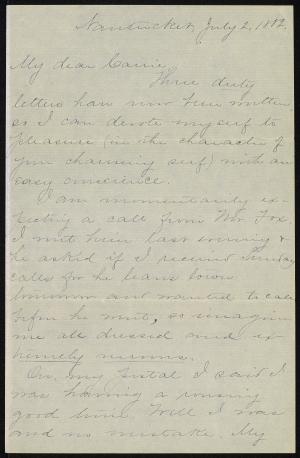 Nantucket, July 2, 1882.
My dear Carrie,
Three duty
letters have now been written,
so I can devote myself to
pleasure (in the character of
your charming self) with an
easy conscience.
I am momentarily ex-
pecting a call from Mr. Fox.
I met him last evening &
he asked if I received Sunday
calls for he leaves town
tomorrow and wanted to call
before he went, so imagine
me all dressed and ex-
tremely nervous.
On my postal I said I
was having a rousing
good time. Well I was
and no mistake. My